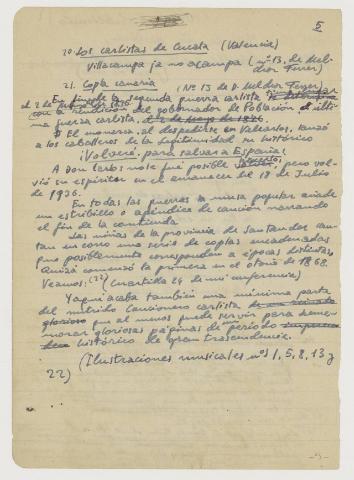 5
20 Los carlistas de Cucala (Valencia)
Villacampa ya no acampa (nº 13. de Mel-
chor Ferrer)
21. Copla canaria (Nº 13 de D. Melchor Ferrer)
la segunda guerra carlista
con la rendición del gobernador de Población, el últi-
ma fuerza carlista, el 2 de Mayo de 1876.
El monarca, al despedirse en Valcarlos, lanzó
a los caballeros de la Legitimidad su histórico
¡Volveré, para salvar a España!
A Don Carlos no le fué posible pero vol-
vió su espíritu en el amanecer del 18 de Julio
de 1936.
En todas las guerras la musa popular añade
un estribillo o apéndice de canción narrando
el fin de la contienda.
Las niñas de la provincia de Santander can-
tan en corro una serie de coplas encadenadas
que posiblemente corresponden a épocas distintas,
quizá comenzó la primera en el otoño de 1868.
Veamos: (22) (cuartilla 24 de mi conferencia)
Y aquí acaba también una mínima parta
del nutrido cancionero carlista
glorioso que al menos puede servir para reme-
morar gloriosas páginas de un período
histórico de gran trascendencia.
(Ilustraciones musicales nºs 1, 5, 8, 13 y
22)